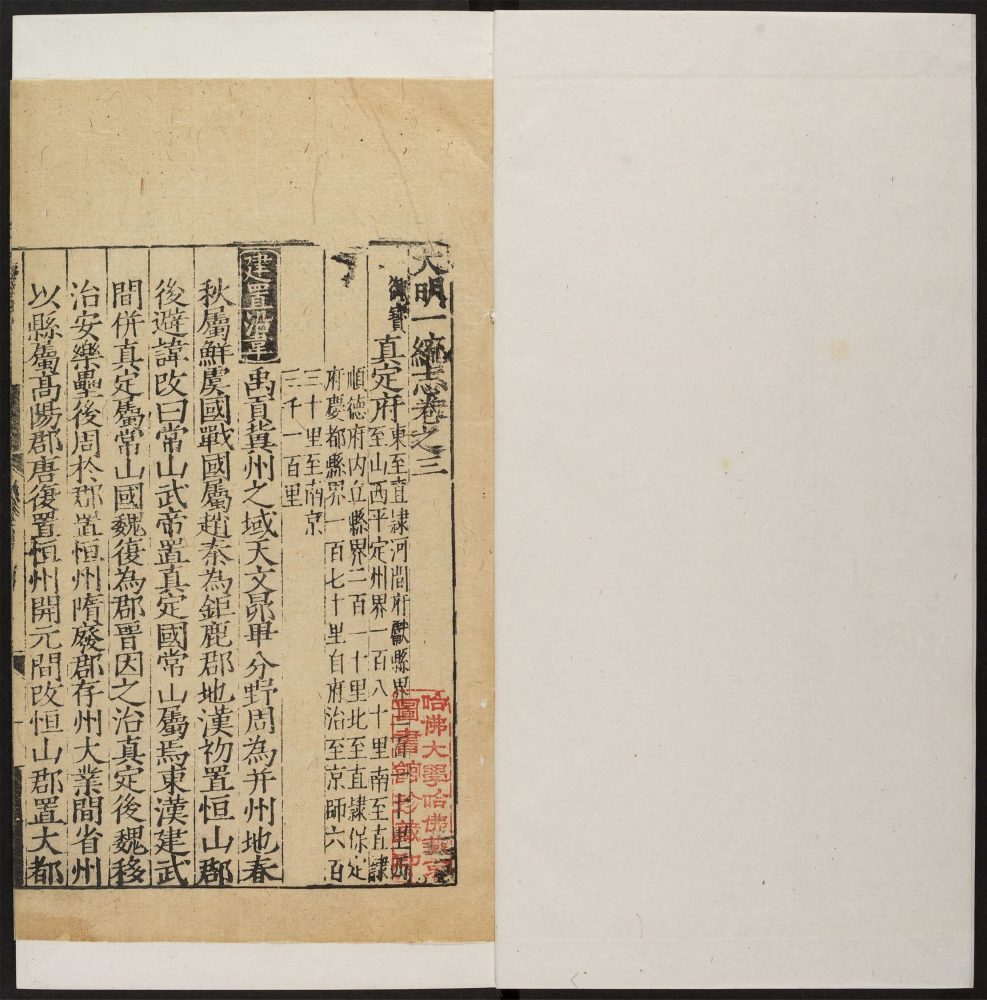 大明一統志卷之三
御寶
真定府
東至直隸河間府獻縣界一百一十里西
至山西平定州界一百八十里南至直隸
順德府内丘縣界二百一十里北至直隸保定
府慶都縣界一百七十里自府治至京師六百
三十里至南京
三千一百里
建置沿革
禹貢冀州之域天文昴畢分野周為并州地春
秋屬鮮虞國戰國屬趙秦為鉅鹿郡地漢初置恒山郡
後避諱改曰常山武帝置真定國常山屬焉東漢建武
間併真定屬常山國魏復為郡晉因之治真定後魏移
治安樂壘後周於郡置恒州隋廢郡存州大業間省州
以縣屬高陽郡唐復置恒州開元間改恒山郡置大都
哈佛大學哈佛燕京
圖書館珍藏印